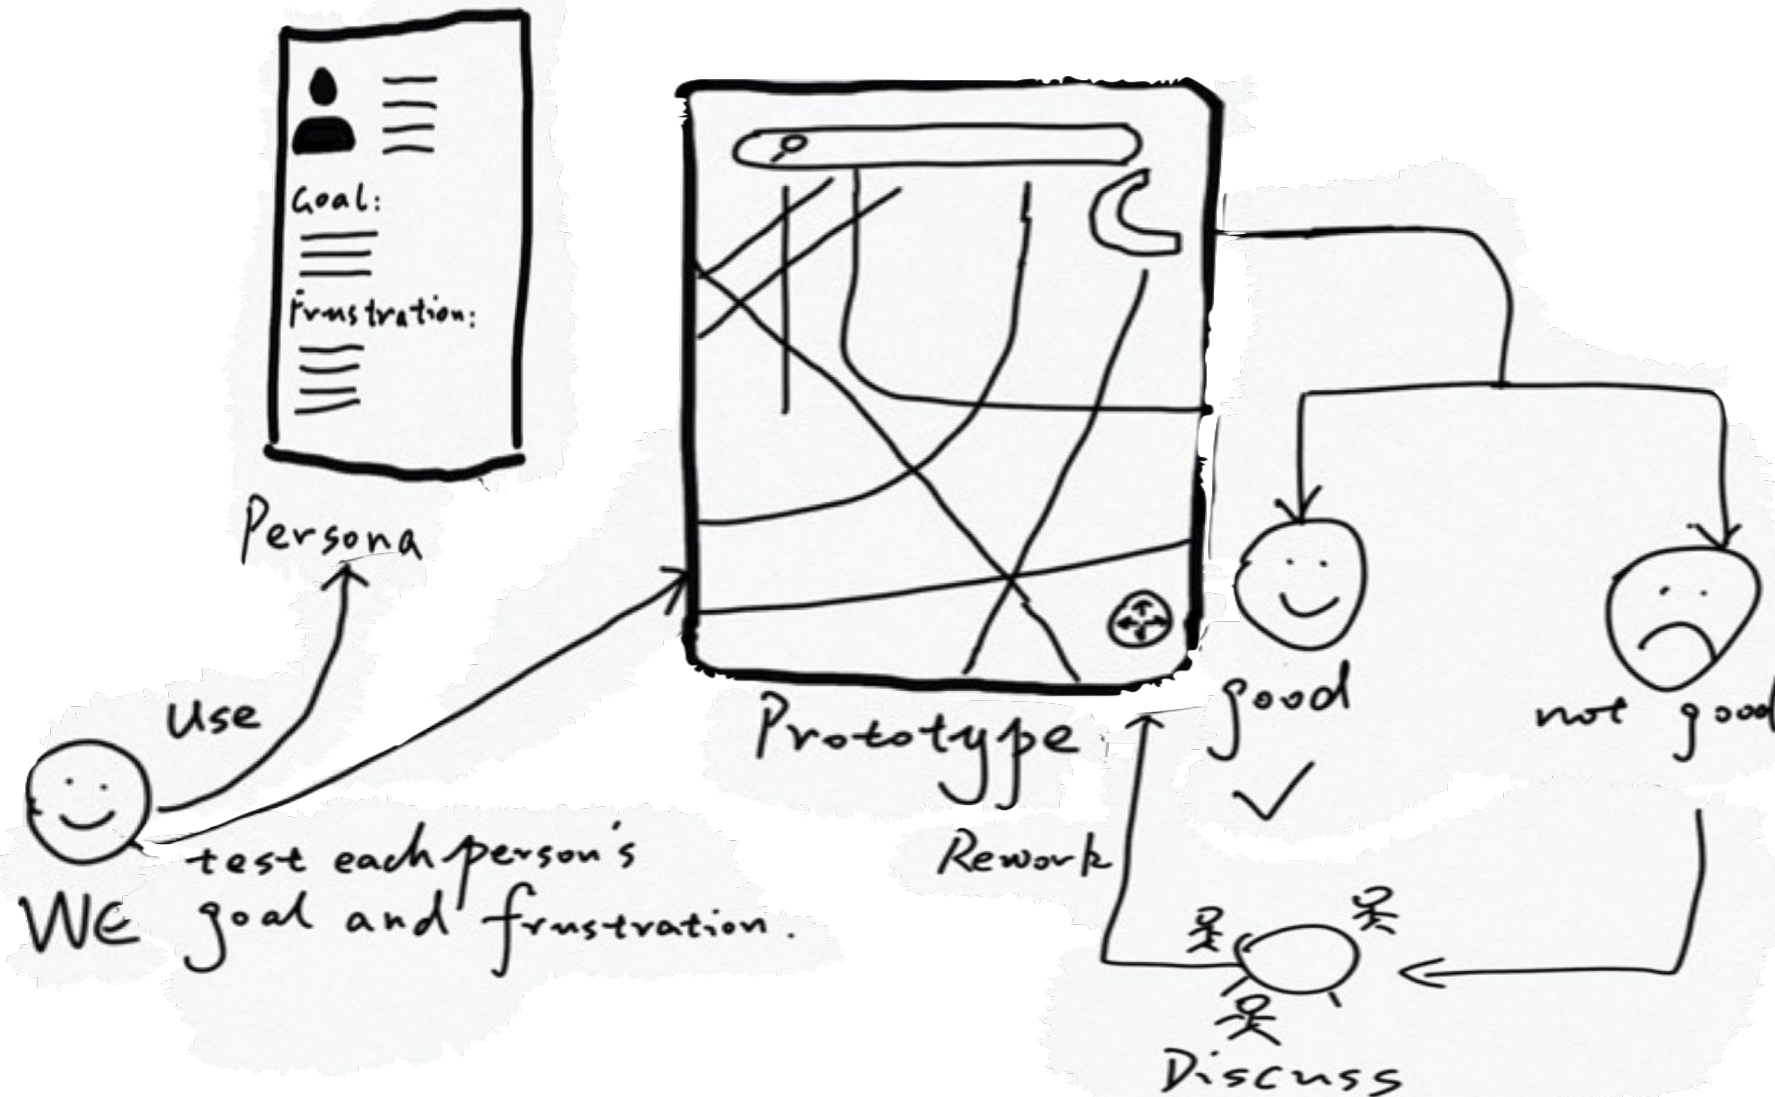 Goal:
Frustration:
Persona
Use
WE
test each person's
goal and frustration.
Prototype
good
not good
Rework
Discuss